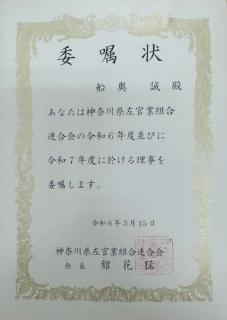 委嘱状
船奥 誠 殿
あなたは神奈川県左官業組合
連合会の令和6年度並びに
令和7年度に於ける理事を
委嘱します。
令和6年3月15日
神奈川県左官業組合連合会
会長 舘花 猛